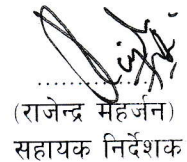 (राजेन्द्र महर्जन)
सहायक निर्देशक